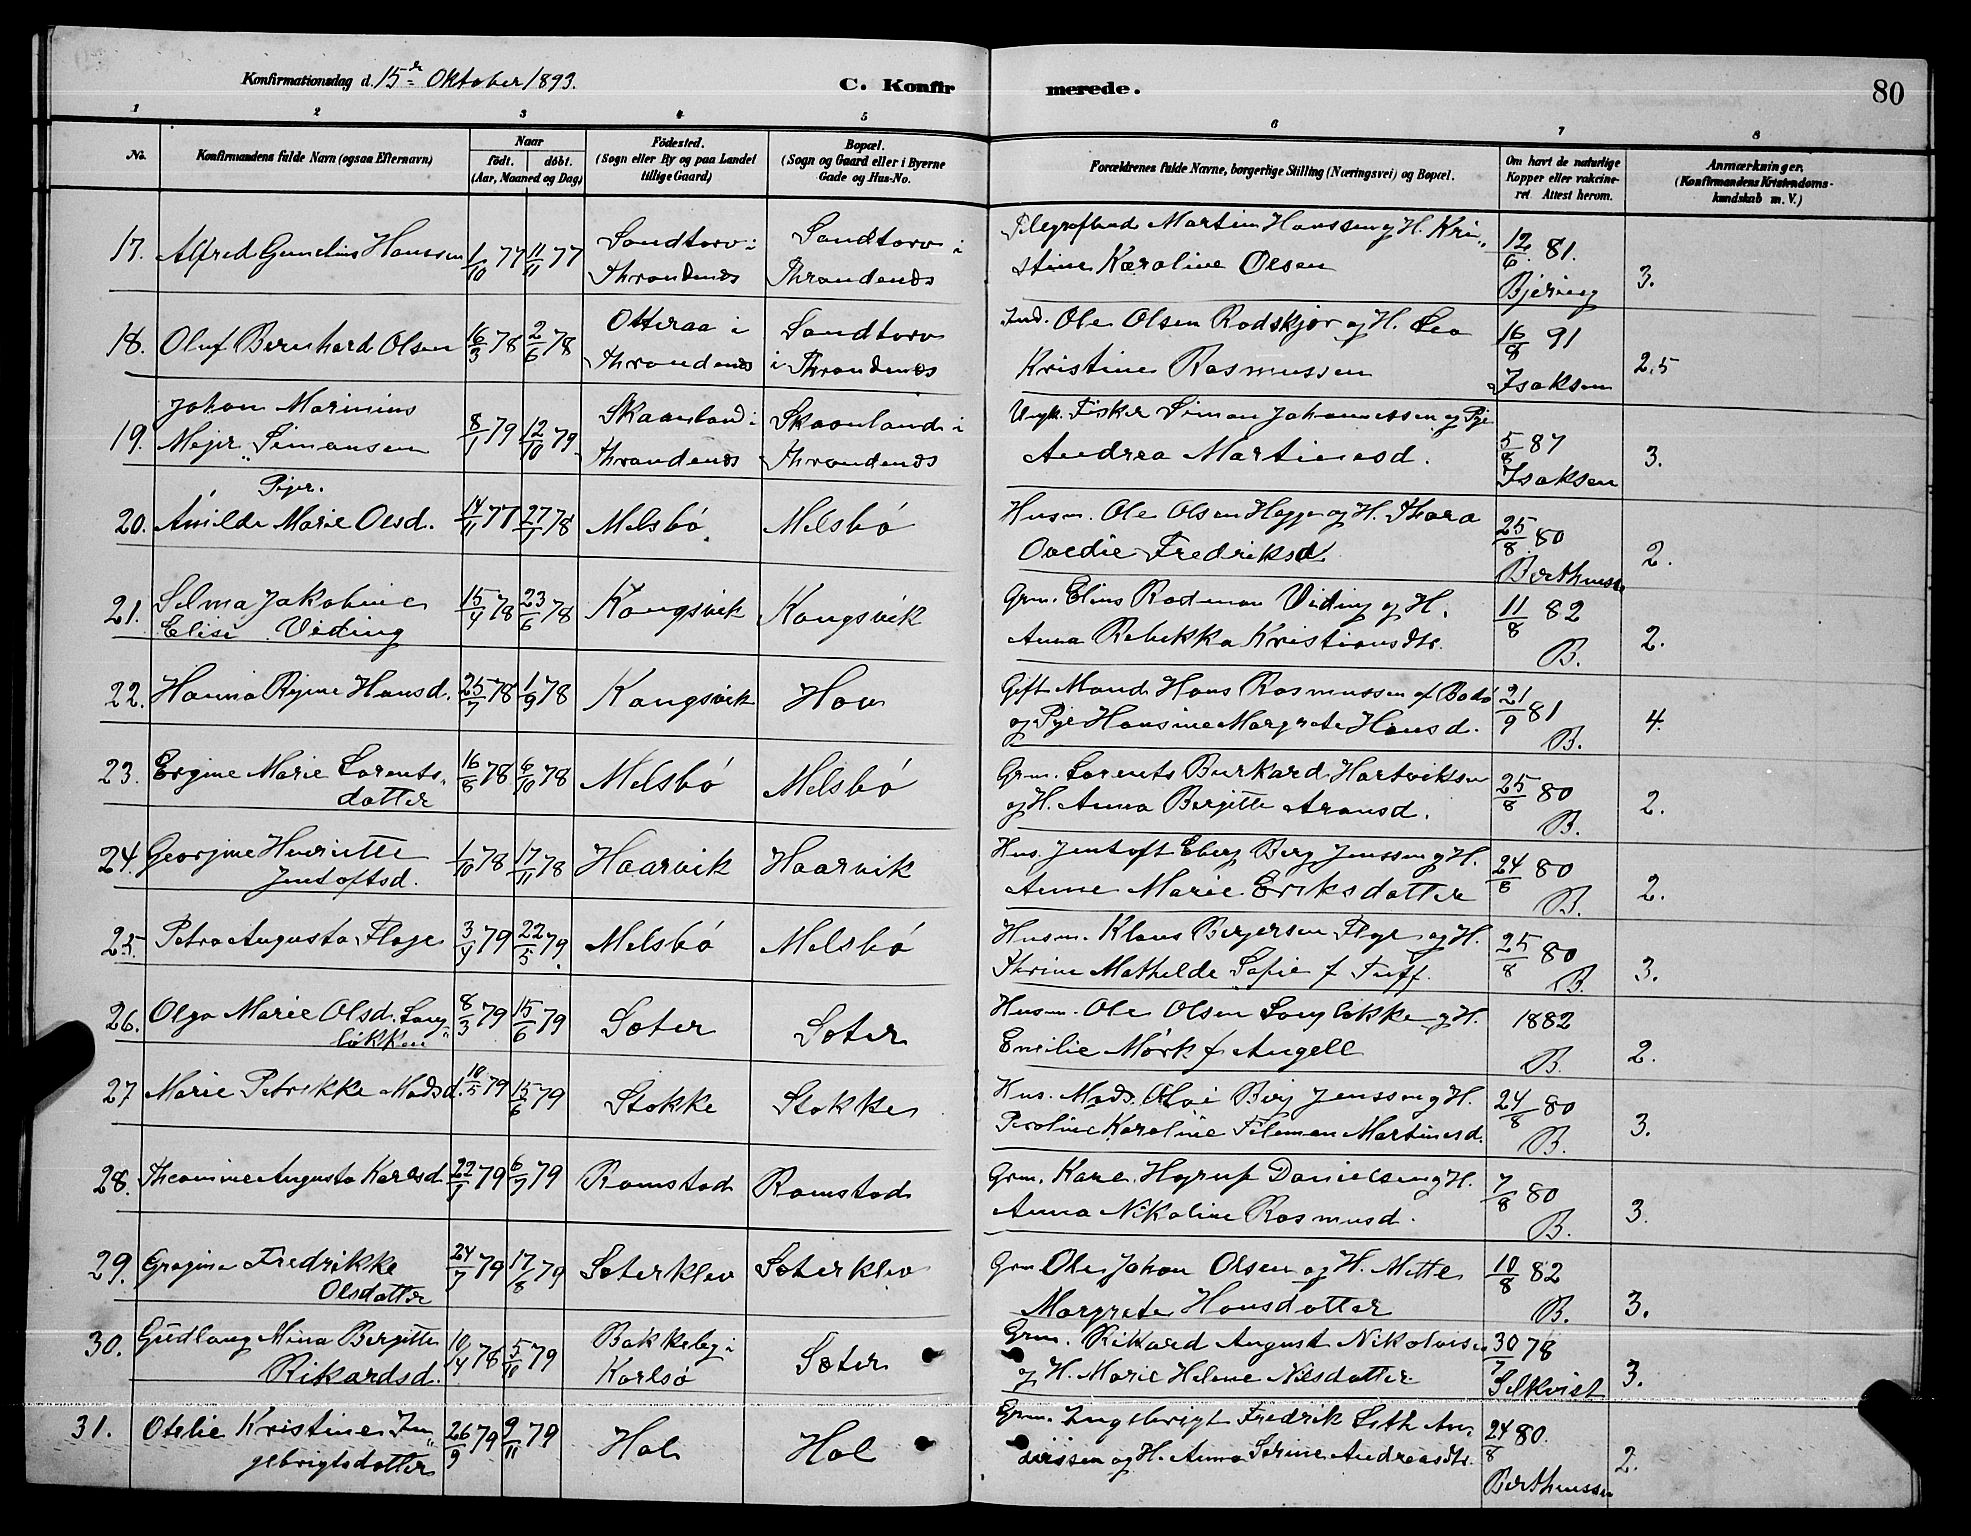 Konfirmationsdag d. 15de Oktober 1893.
C. Konfirmerede.
80
1 2 3 4 5 6 7 8
No.
Konfirmandens fulde Navn (ogsaa Efternavn)
Naar
født. døbt.
(Aar, Maaned og Dag)
Fødested.
(Sogn eller By og paa Landet
tillige Gaard)
Bopæl.
(Sogn og Gaard eller i Byerne
Gade og Hus-No.
Forældrenes fulde Navne, borgerlige Stilling (Næringsvei) og Bopæl.
Om havt de naturlige
Kopper eller vakcine-
ret Attest herom.
Anmærkninger.
(Konfirmandens Kristendoms-
kundskab m. V.)
17. Alfred Gunelius Hanssen 1/10 77 11/11 77
Sandtorv i
Throndenæs
Sandtorv i
Throndenæs
Martin Hanssen og H. Kri-
stine Karoline Olsen
12/6 81.
Bjering
3.
18. Oluf Bernhard Olsen 16/3 78 2/6 78
Otteraa i
Throndenæs
Sandtorv
i Throndenæs
Ind. Ole Olsen Rodskjær og H. Lea
Kristine Rasmussen
16/8 91
Isaksen
2.5
19. Johan Marinius
Mejer Simonsen
8/1 79 12/10 79
Skaanland i
Throndenæs
Skaanland i
Throndenæs
Ungk. Fisker Simon Johannessen og Pige
Andrea Martinesd.
5/8 87
Isaksen
3.
Piger.
20. Amilde Marie Olsd. 14/11 77 27/1 78 Melsbö Melsbö
Husm. Ole Olsen Hegge og H. Thora
Ovedie Fredriksd.
25/8 80
Bertheussen
2.
21. Selma Jakobine
Elise Viding
15/4 78 23/6 78 Kongsvik Kongsvik
Grm. Elius Rodman Viding og H.
Anna Rebekka Kristiansdtr.
11/8 82
B.
2.
22. Hanna Regine Hansd. 25/7 78 1/9 78 Kongsvik Hov
Gift Mand Hans Rasmussen af Bodö
og Pige Hansine Margrete Hansd.
21/9 81
B.
4.
23. Ergine Marie Lorents-
datter
16/8 78 6/10 78 Melsbö Melsbö
Grm. Lorents Burkard Hartviksen
og H. Anna Bergitte Aronsd.
25/8 80
B.
2.
24. Georgine Henriette
Jentoftsd.
1/10 78 17/11 78 Haarvik Haarvik
Hus. Jentoft Eberg Berg Jenssen og H.
Anne Marie Eriksdatter
24/8 80
B.
2.
25. Petra Augusta Floge 3/4 79 22/5 79. Melsbö Melsbö
Husm. Klaus Bergersen Floge og H.
Thrine Mathilde Sofie f. Tuff.
25/8 80
B.
3.
26. Olga Marie Olsd. Lang-
lökken
8/3 79 15/6 79 Sæter Sæter
Husm. Ole Olsen Langlökken og H.
Emilie Mörk f. Angell
1882
B.
2.
27 Marie Petrikke Madsd. 10/5 79 15/6 79 Stokke Stokke
Hus. Mads Olai Berg Jenssen og H.
Peroline Karoline Filemon Martinesd.
24/8 80
B.
3.
28. Theamine Augusta Karlsd. 22/1 79 6/7 79 Ramstad Ramstad
Grm. Karl Hyrup Danielsen og H.
Anna Nikoline Rasmusd.
7/8 80
B.
3.
29. Gregine Fredrikke
Olsdatter
24/7 79 17/8 79 Sæterklev Sæterklev
Grm Ole Johan Olsen og H. Mette
Margrete Hansdatter
10/8 82
B.
3.
30. Gudlaug Mina Bergitte
Rikardsd.
10/4 78 5/10 79
Bakkeby i
Karlsö
Sæter
Grm. Rikard August Nikolaisen
og H. Marie Helene Nilsdatter
30/7 78
Selkvist
3.
31. Otelie Kristine In-
gebrigtsdatter
26/9 79 9/11 79 Hol Hol
Grm. Ingebrigt Fredrik Seth An-
derssen og H. Anna Serine Andreasdtr.
24/8 80.
Bertheussen
2.